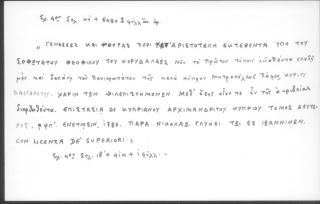 Σχ. 4ον Σελ. κή + 6
"ΓΕΝΕΣΕΩΣ ΚΑΙ ΦΘΟΡΑΣ ΠΕΡΙ ΚΑΤ' ΑΡΙΣΤΟΤΕΛΗ ΕΚΤΕΘΕΝΤΑ ΥΠΟ ΤΟΥ
ΣΟΦΩΤΑΤΟΥ ΘΕΟΦΙΛΟΥ ΤΟΥ ΚΟΡΥΔΑΛΕΩΣ Νῦν τὸ πρῶτον τύποις ἐκδοθέντα σπουδῇ
μὲν καὶ δαπάνῃ τοῦ Πανιερωτάτου τῆς κατὰ Κύπρον Μητροπόλεως Πάφου ΚΥΡΙΟΥ
ΠΑΝΑΡΕΤΟΥ. ΧΑΡΙΝ ΤΩΝ ΦΙΛΕΠΙΣΤΗΜΟΝΩΝ. Μεθ' ὅσης οἷόν τε ἦν τῆς ἀκριβείας
διορθωθέντα. ΕΠΙΣΤΑΣΙΑ ΔΕ ΚΥΠΡΙΑΝΟΥ ΑΡΧΙΜΑΝΔΡΙΤΟΥ ΚΥΠΡΙΟΥ ΤΟΜΟΣ ΔΕΥΤΕ-
ΡΟΣ. ΕΝΕΤΙΗΣΙΝ, 1780. ΠΑΡΑ ΝΙΚΟΛΑῼ ΓΛΥΚΕΙ Τῼ ΕΞ ΙΩΑΝΝΙΝΩΝ.
CON LICENZA DE' SUPERIORI.
Σχ. 4ον Σελ. ιβ' +